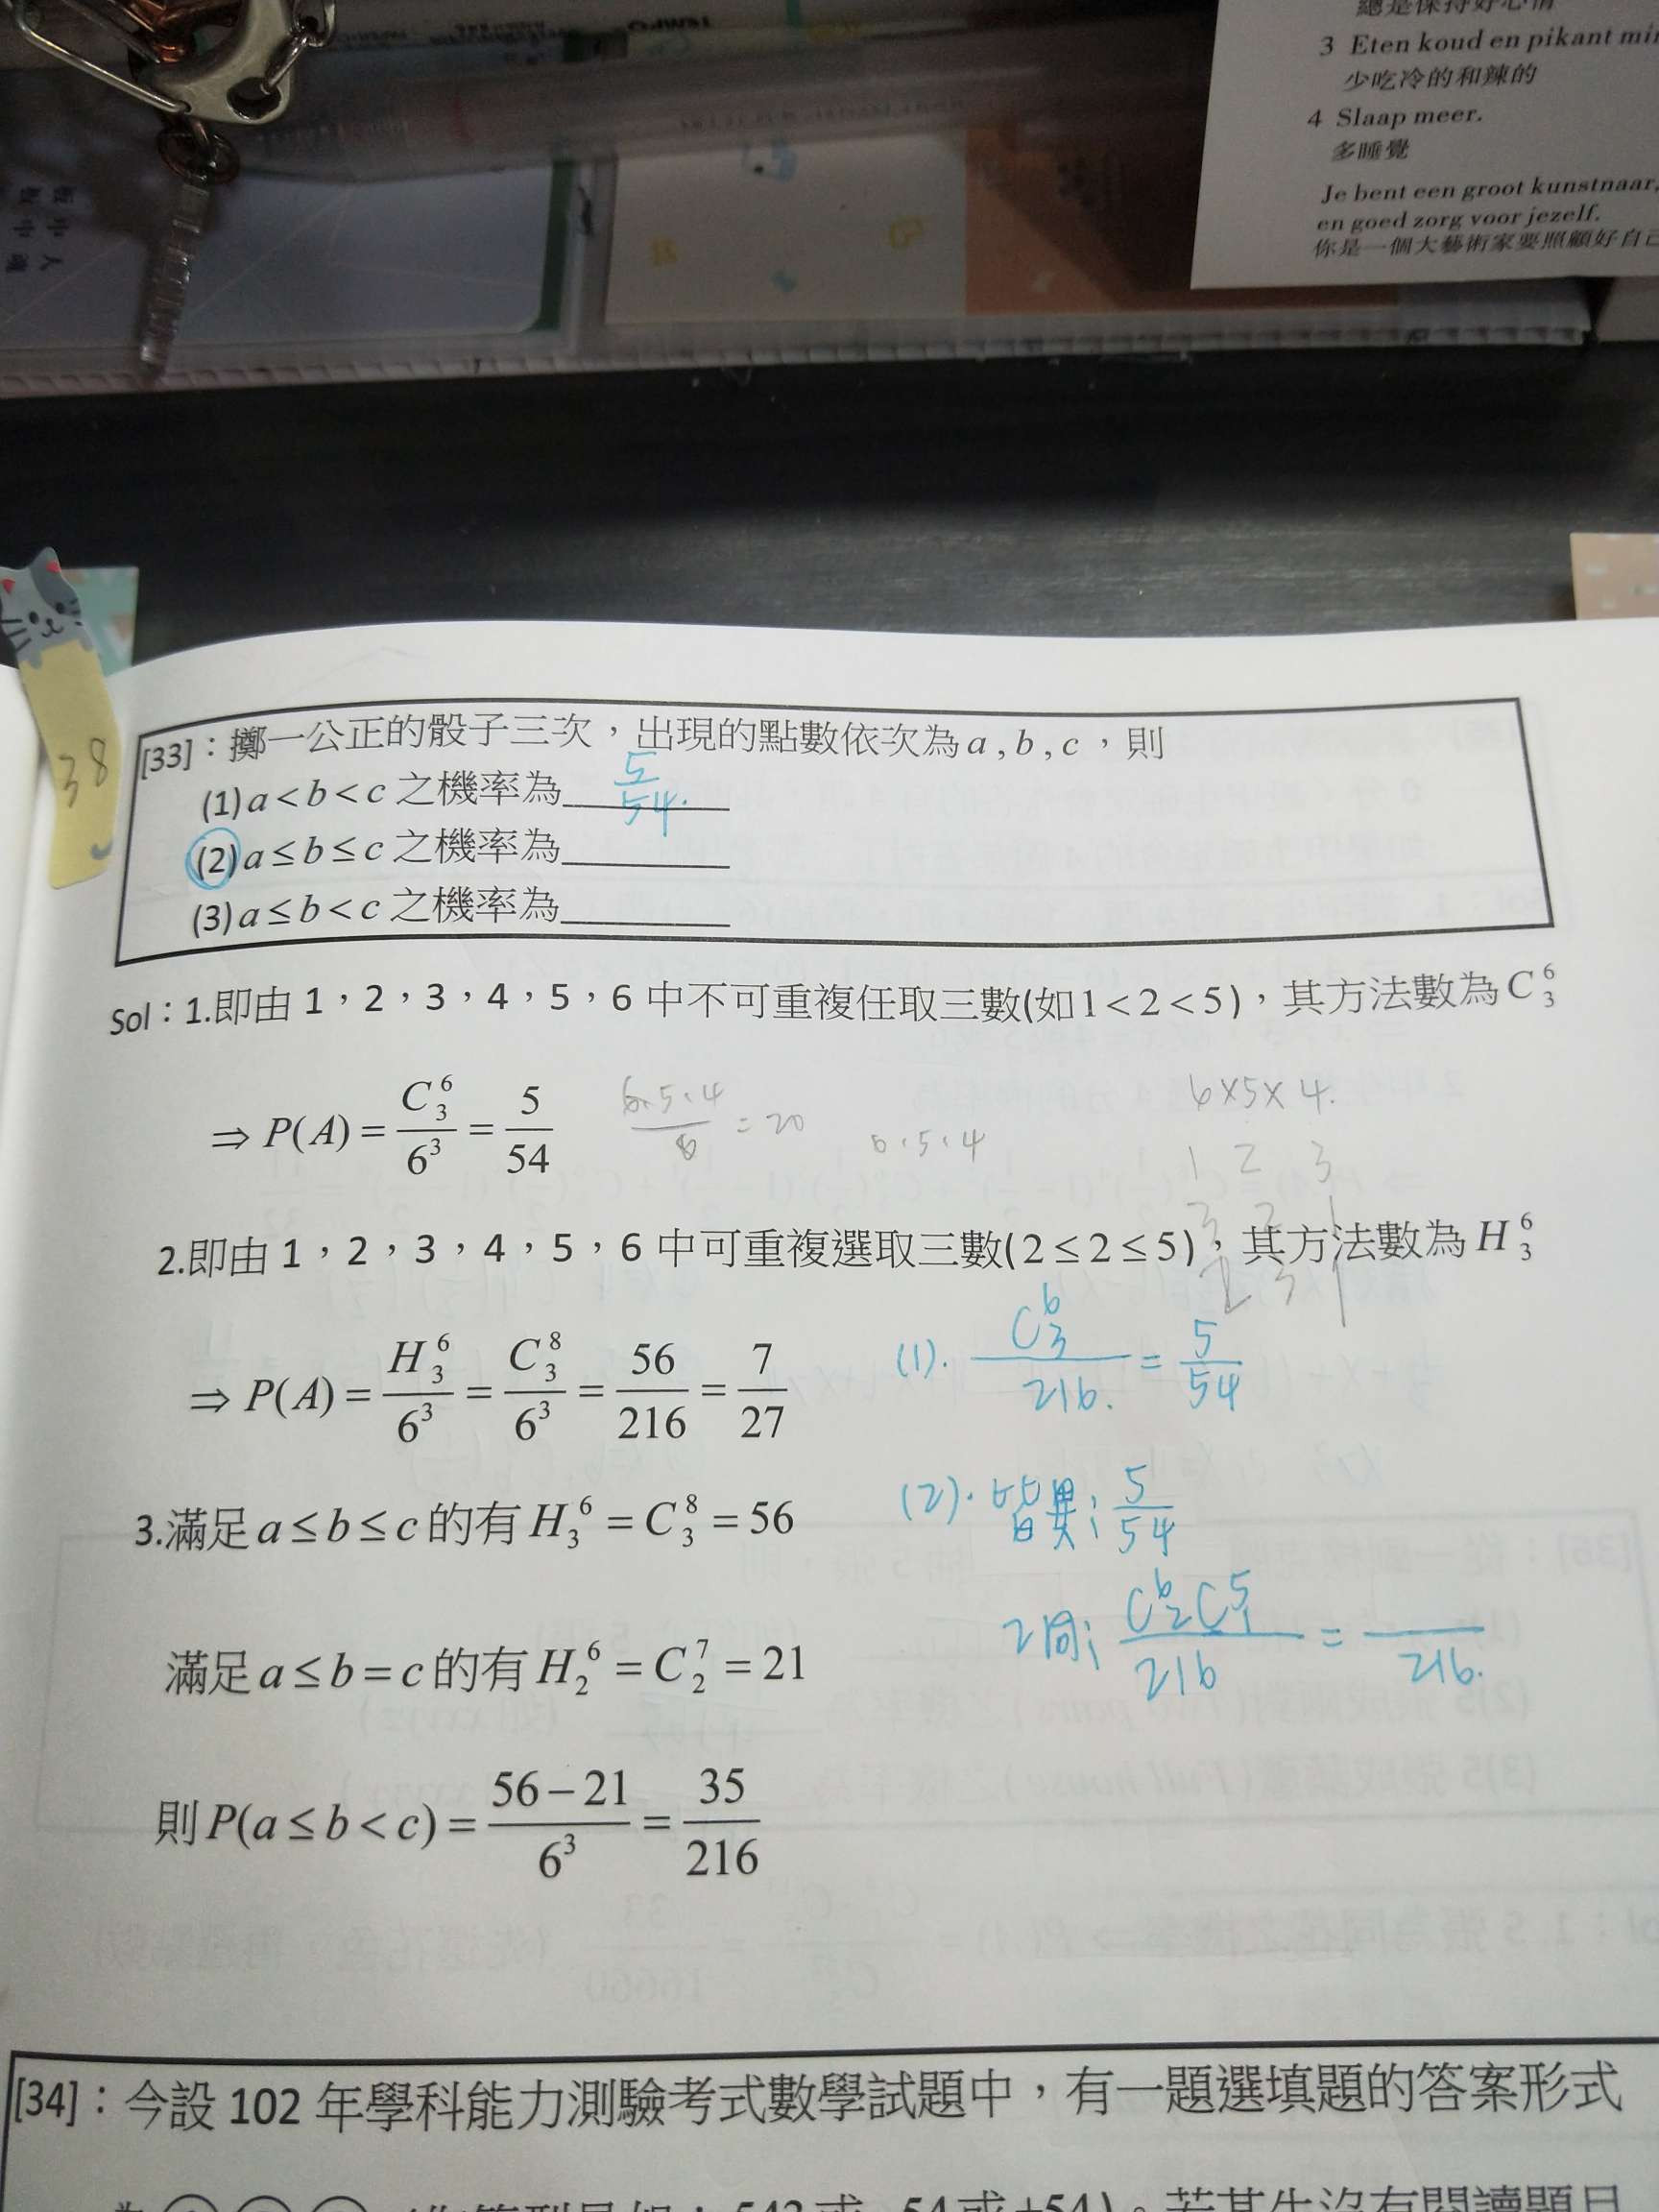 總是保持好心情
3 Eten koud en pikant
少吃冷的和辣的
4 Slaap meer.
多睡覺
Je bent een groot kunstnaar,
en goed zorg voor jezelf.
你是一個大藝術家要照顧好自己
38
[33]：擲一公正的骰子三次，出現的點數依次為 a , b , c ，則
(1) a < b < c 之機率為 5/54.
(2) a ≤ b ≤ c 之機率為______
(3) a ≤ b < c 之機率為______
Sol：1.即由 1，2，3，4，5，6 中不可重複任取三數(如1 < 2 < 5)，其方法數為 C^6_3
⇒ P(A) = C^6_3 / 6^3 = 5/54
6·5·4 / 6 = 20
6·5·4
6×5×4.
1 2 3
3 2 1
2 3 1
2.即由 1，2，3，4，5，6 中可重複選取三數(2 ≤ 2 ≤ 5)，其方法數為 H^6_3
⇒ P(A) = H^6_3 / 6^3 = C^8_3 / 6^3 = 56/216 = 7/27
(1). C^6_3 / 216. = 5/54
3.滿足 a ≤ b ≤ c 的有 H^6_3 = C^8_3 = 56
(2). 皆異; 5/54
滿足 a ≤ b = c 的有 H^6_2 = C^7_2 = 21
2同; C^6_2 C^5_1 / 216 = / 216.
則 P(a ≤ b < c) = (56 − 21) / 6^3 = 35/216
[34]：今設 102 年學科能力測驗考式數學試題中，有一題選填題的答案形式